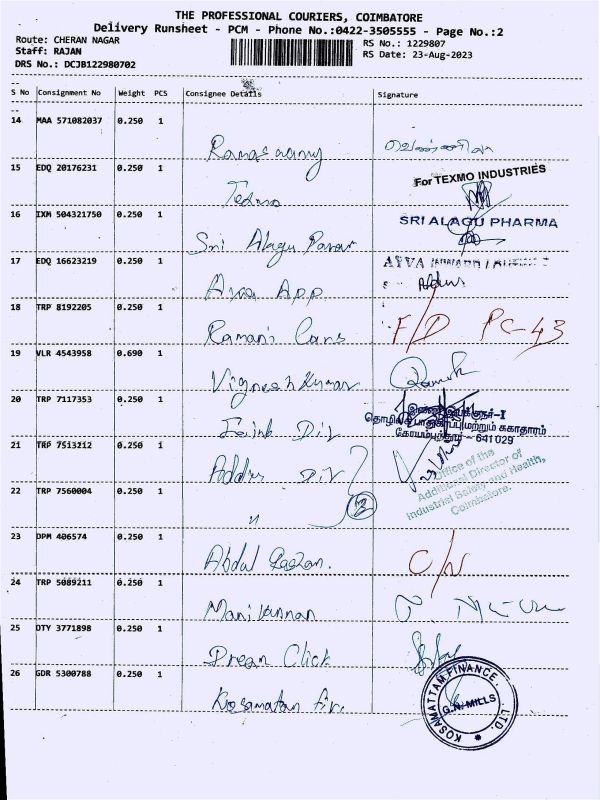 THE PROFESSIONAL COURIERS, COIMBATORE
Delivery Runsheet - PCM - Phone No.:0422-3505555 - Page No.:2
Route: CHERAN NAGAR
Staff: RAJAN
DRS No.: DCJB122980702
RS No.: 1229807
RS Date: 23-Aug-2023
S No Consignment No Weight PCS Consignee Details Signature
14 MAA 571082037 0.250 1
Ramaswamy
15 EDQ 20176231 0.250 1
Texmo
For TEXMO INDUSTRIES
16 IXM 504321750 0.250 1
Sri Alagu
SRI ALAGU PHARMA
17 EDQ 16623219 0.250 1
App
18 TRP 8192205 0.250 1
Ramani Cars F/D PC-43
19 VLR 4543958 0.690 1
Vignesh Kumar
20 TRP 7117353 0.250 1
Joint Dir
இணை இயக்குநர்-I
தொழிலக பாதுகாப்பு மற்றும் சுகாதாரம்
கோயம்புத்தூர் - 641 029
21 TRP 7513212 0.250 1
Dir
Office of the
Additional Director of
Industrial Safety and Health,
Coimbatore.
22 TRP 7560004 0.250 1
〃 3
23 DPM 406574 0.250 1
Abdul C/N
24 TRP 5089211 0.250 1
Manikannan
25 DTY 3771898 0.250 1
Dream Click
26 GDR 5300788 0.250 1
KOSAMATTAM FINANCE. LTD.
G.N. MILLS